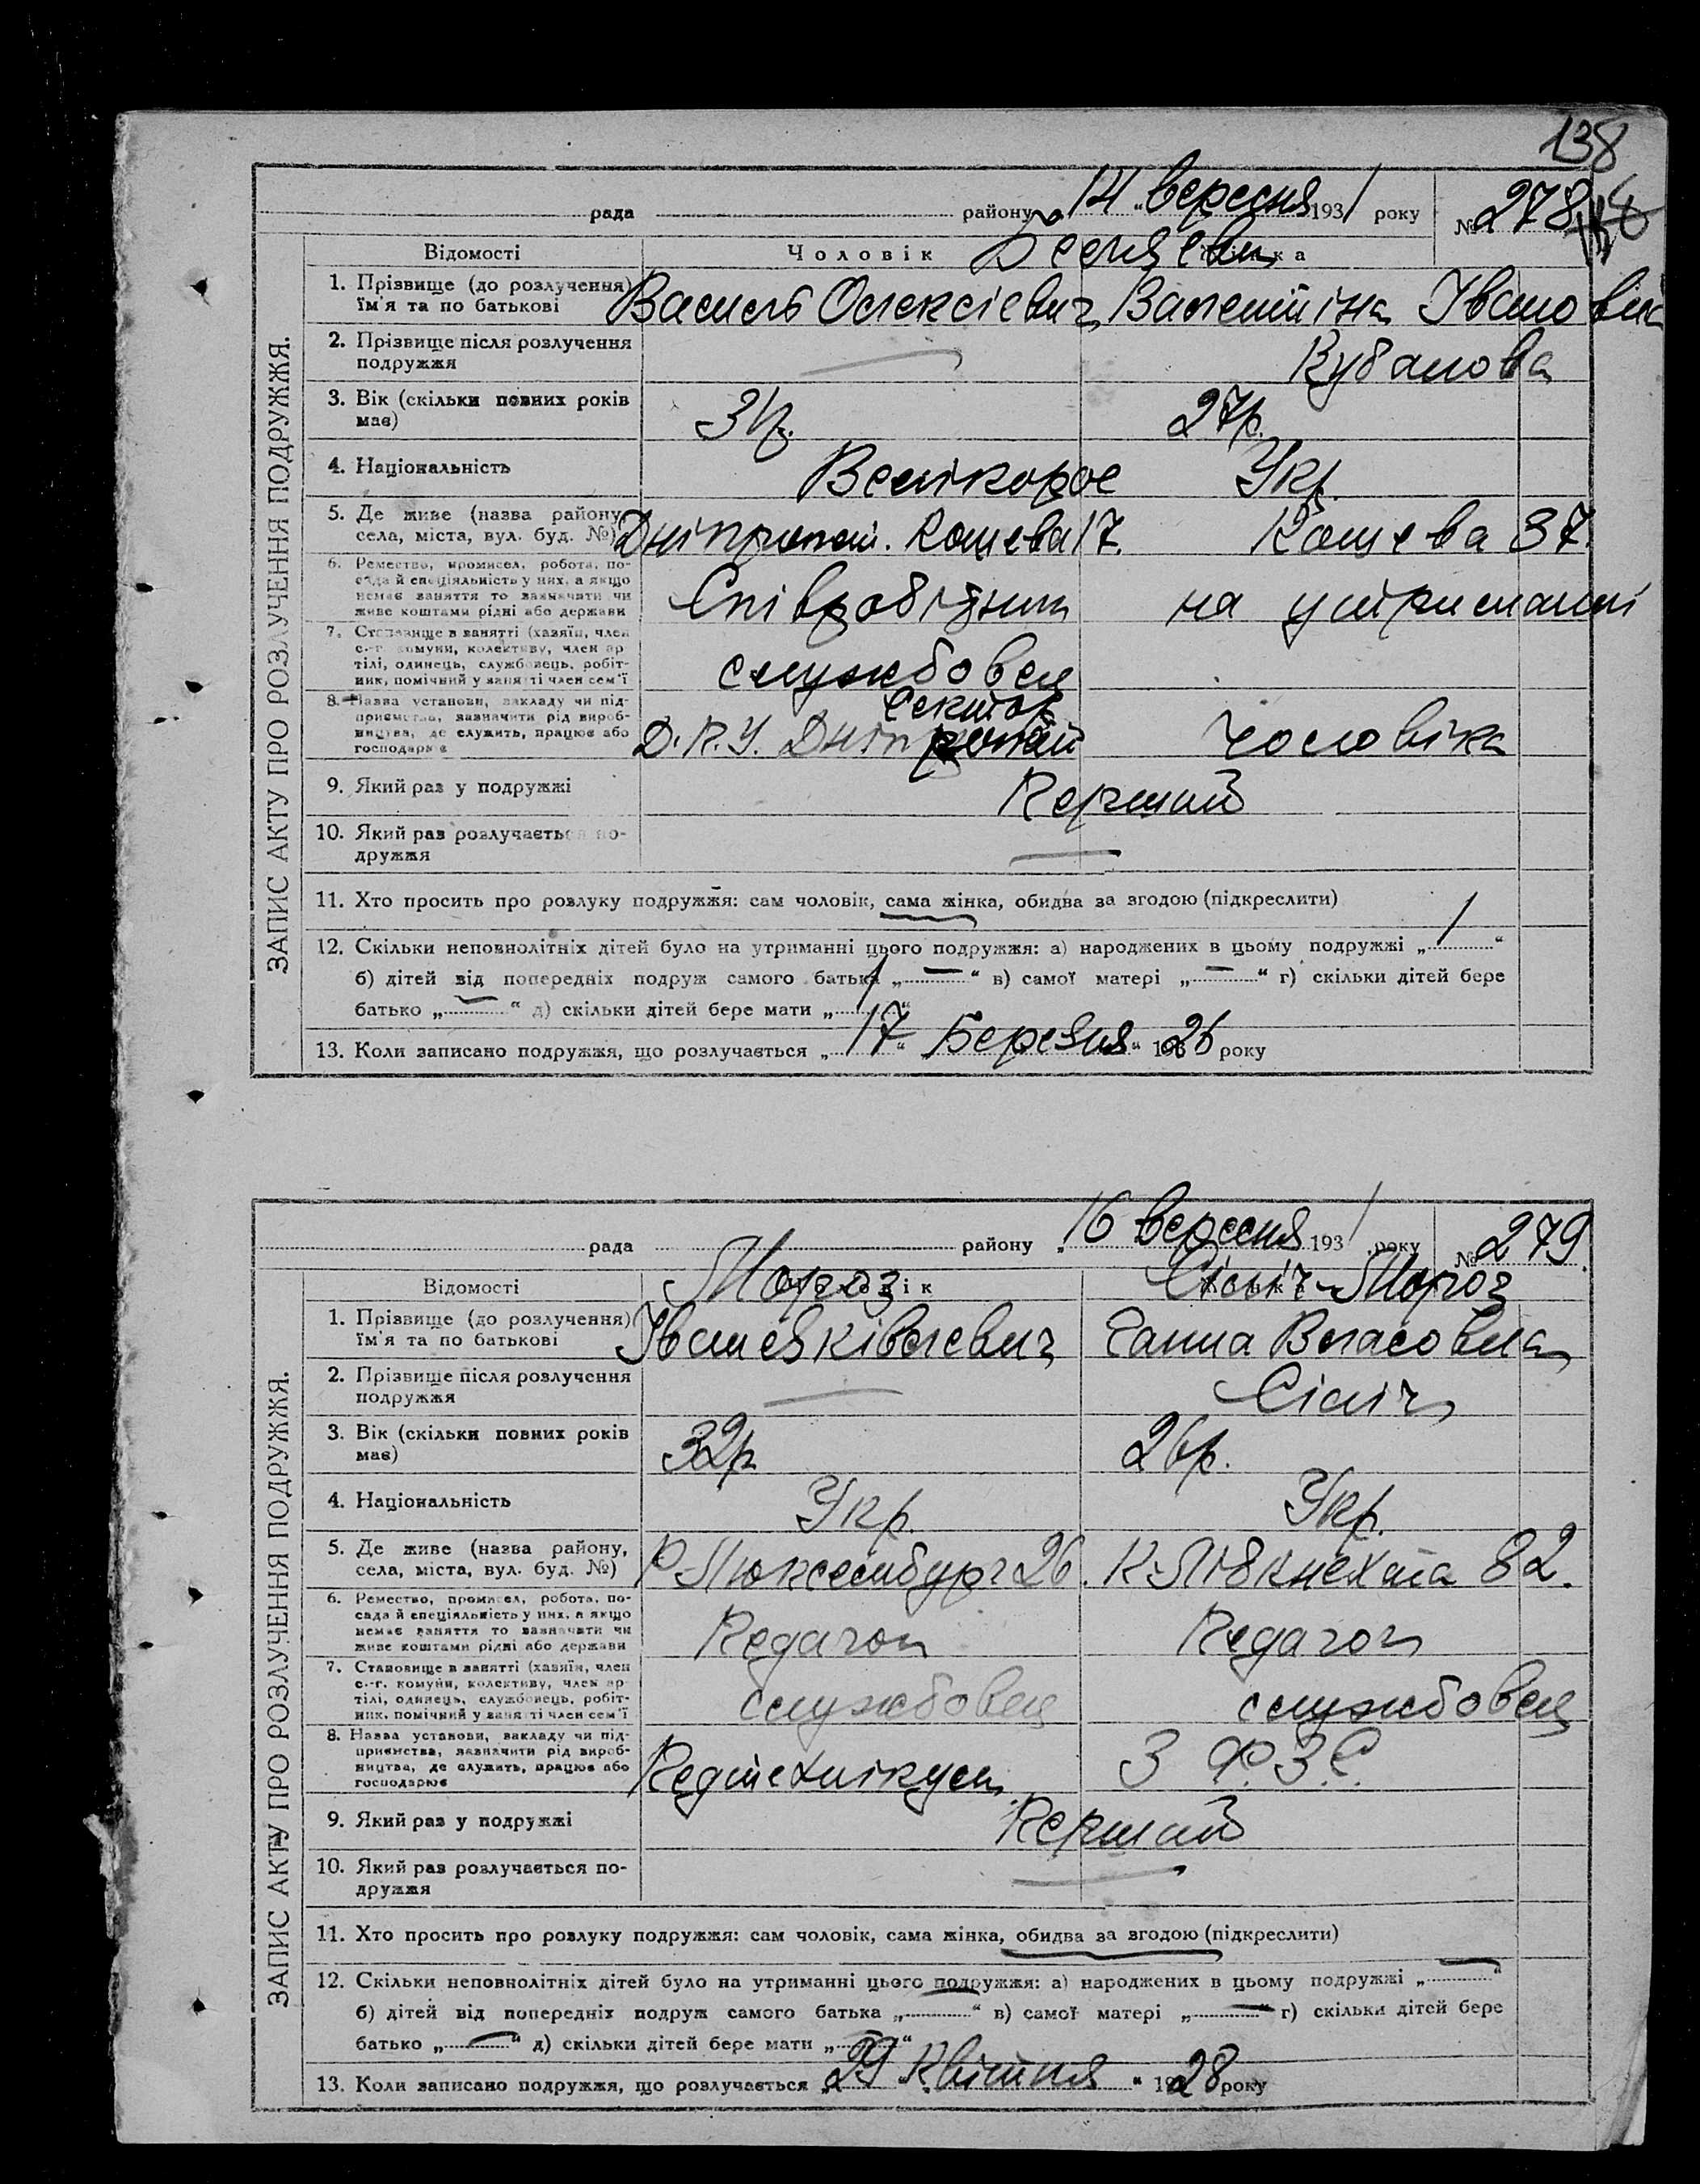 138
рада района „14“ вересня 1931 року № 278
Відомості Чоловік Жінка
Беляєви
1. Прізвище (до розлучення) Василь Олексієвич Валентіна Івановна
ім'я та по батькові
2. Прізвище після розлучення — Кубанова
подружжя
3. Вік (скільки повних років 31р. 27р.
має)
4. Національність Велікорос Укр.
5. Де живе (назва району, Дніпропет. Кошева 17. Кошева 37.
села, міста, вул. буд. №)
6. Ремество, промисел, робота, по-
сада й спеціяльність у них, а якщо Співробітник на утриманні
немає заняття то зазначати чи
живе коштами рідні або держави
7. Становище в занятті (хазяїн, член
с.-г. комуни, колективу, член ар-
тілі, одинець, службовець, робіт- службовец
ник, помічний у занятті член сем'ї
8. Назва установи, закладу чи під- Сектор
приємства, зазначити рід вироб-
ництва, де служить, працює або Чоловіка
господарює
9. Який раз у подружжі Перший
10. Який раз розлучається по- —
дружжя
11. Хто просить про розлуку подружжя: сам чоловік, сама жінка, обидва за згодою (підкреслити)
12. Скільки неповнолітніх дітей було на утриманні цього подружжя: а) народжених в цьому подружжі „1“
б) дітей від попередніх подруж самого батька „—“ в) самої матері „—“ г) скільки дітей бере
батько „—“ д) скільки дітей бере мати „1“
13. Коли записано подружжя, що розлучається „17“ Березня 1926 року
ЗАПИС АКТУ ПРО РОЗЛУЧЕННЯ ПОДРУЖЖЯ.
рада району „16 вересня 1931 року № 279
Відомості Мороз Сісіч-Мороз
1. Прізвище (до розлучення) Іван Ганна Власовна
ім'я та по батькові
2. Прізвище після розлучення — Сісіч
подружжя
3. Вік (скільки повних років 32р. 26р.
має)
4. Національність Укр. Укр.
5. Де живе (назва району, Р-Люксембург 26. К-Лібкнехта 82.
села, міста, вул. буд. №)
6. Ремество, промисел, робота, по-
сада й спеціяльність у них, а якщо Педагог Педагог
немає заняття то зазначати чи
живе коштами рідні або держави
7. Становище в занятті (хазяїн, член
с.-г. комуни, колективу, член ар- службовец службовец
тілі, одинець, службовець, робіт-
ник, помічний у занятті член сем'ї
8. Назва установи, закладу чи під-
приємства, зазначити рід вироб- Педтехнікум 3 Ф.З.С.
ництва, де служить, працює або
господарює
9. Який раз у подружжі Перший
10. Який раз розлучається по- —
дружжя
11. Хто просить про розлуку подружжя: сам чоловік, сама жінка, обидва за згодою (підкреслити)
12. Скільки неповнолітніх дітей було на утриманні цього подружжя: а) народжених в цьому подружжі „—“
б) дітей від попередніх подруж самого батька „—“ в) самої матері „—“ г) скільки дітей бере
батько „—“ д) скільки дітей бере мати „—“
13. Коли записано подружжя, що розлучається „29 Квітня“ 1928 року
ЗАПИС АКТУ ПРО РОЗЛУЧЕННЯ ПОДРУЖЖЯ.